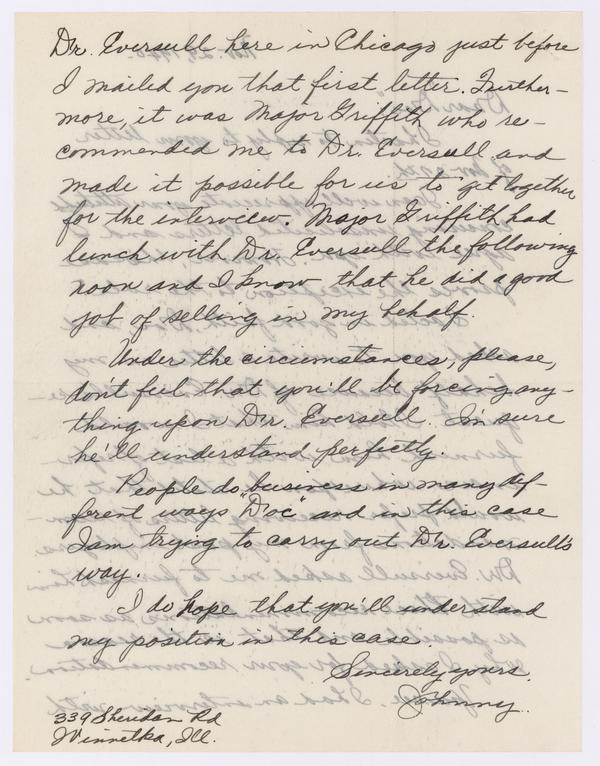 Dr. Eversull here in Chicago just before
I mailed you that first letter. Further-
more, it was Major Griffith who re-
commended me to Dr. Eversull and
made it possible for us to get together
for the interview. Major Griffith had
lunch with Dr. Eversull the following
noon and I know that he did a good
job of selling in my behalf.
Under the circumstances, please,
don't feel that you'll be forcing any-
thing upon Dr. Eversull. I'm sure
he'll understand perfectly.
People do business in many dif-
ferent ways "Doc" and in this case
I am trying to carry out Dr. Eversull's
way.
I do hope that you'll understand
my position in this case.
Sincerely yours,
Johnny.
339 Sheridan Rd
Winnetka, Ill.